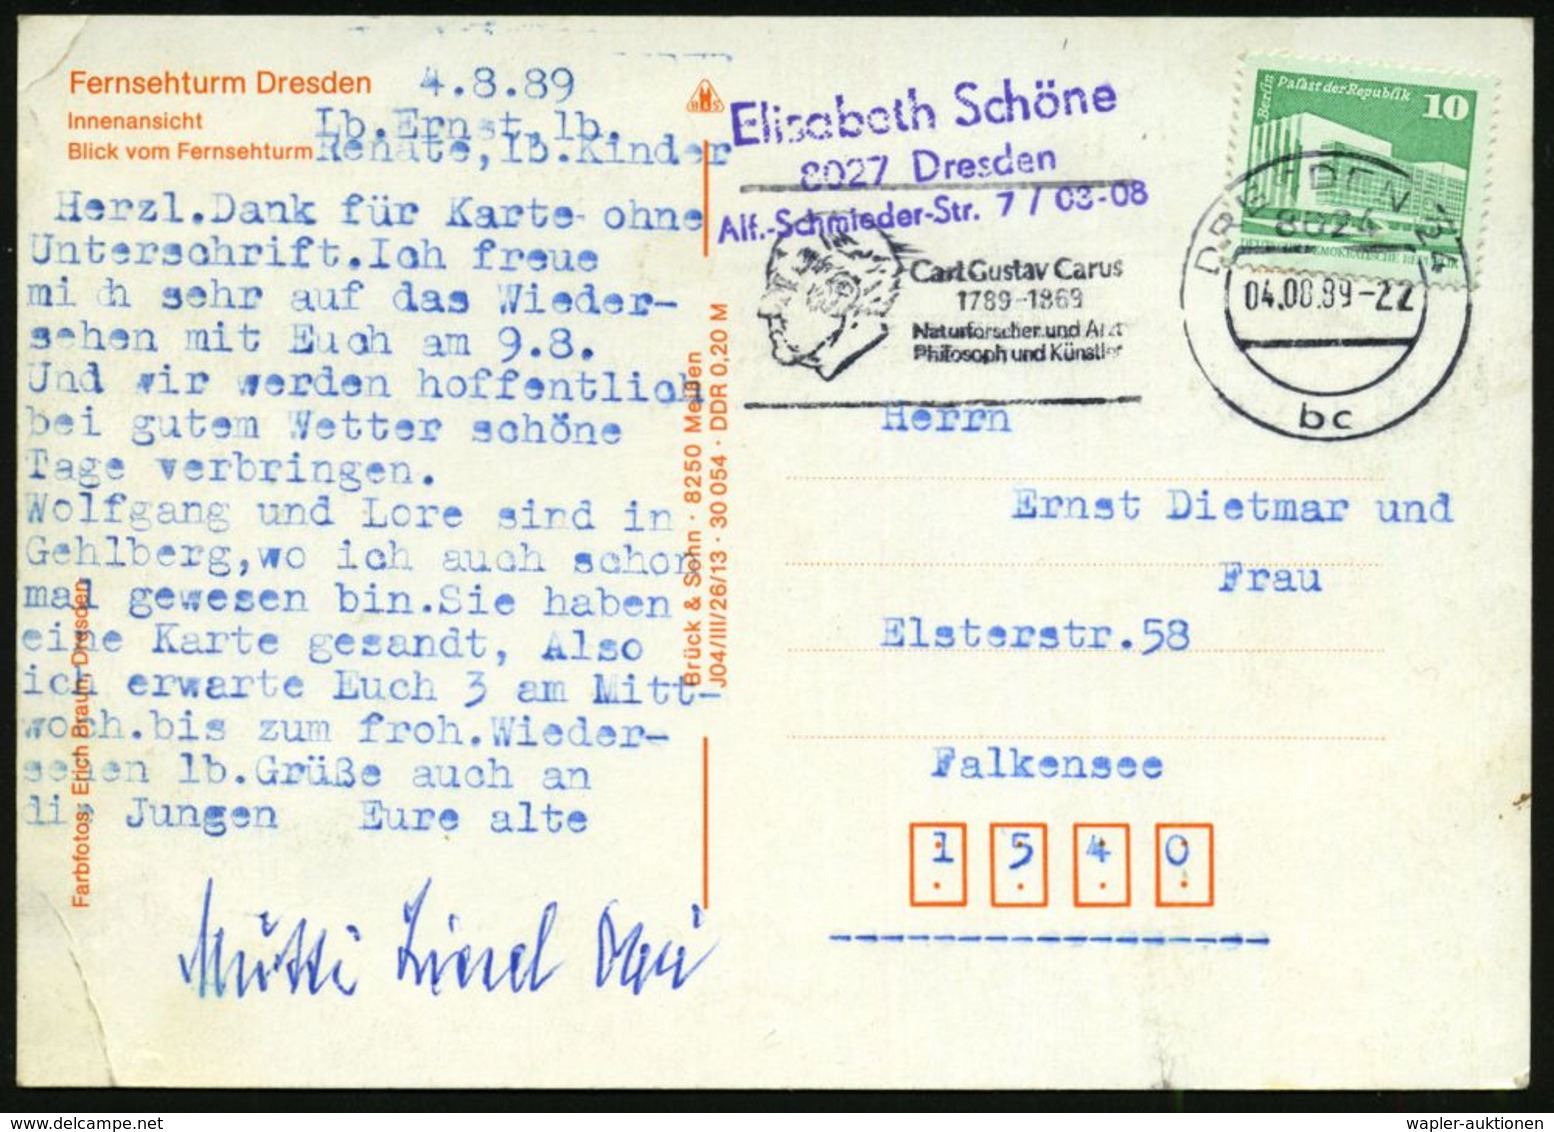 Fernsehturm Dresden
Innenansicht
Blick vom Fernsehturm
4.8.89
Lb.Ernst lb.
Renate, lb.Kinder
Herzl.Dank für Karte ohne
Unterschrift.Ich freue
mich sehr auf das Wieder-
sehen mit Euch am 9.8.
Und wir werden hoffentlich
bei gutem Wetter schöne
Tage verbringen.
Wolfgang und Lore sind in
Gehlberg,wo ich auch schon
mal gewesen bin.Sie haben
eine Karte gesandt, Also
ich erwarte Euch 3 am Mitt-
woch.bis zum froh.Wieder-
sehen lb.Grüße auch an
die Jungen Eure alte
Mutti Liesel Omi
Farbfotos: Erich Braun, Dresden
Brück & Sohn · 8250 Meißen
J04/III/26/13 · 30 054 · DDR 0,20 M
B&S
Elisabeth Schöne
8027 Dresden
Alf.-Schmieder-Str. 7 / 03-08
Carl Gustav Carus
1789-1869
Naturforscher und Arzt
Philosoph und Künstler
Berlin Palast der Republik 10
DEUTSCHE DEMOKRATISCHE REPUBLIK
DRESDEN 34
8024
04.08.89-22
bc
Herrn
Ernst Dietmar und
Frau
Elsterstr.58
Falkensee
1 5 4 0
wapler-auktionen